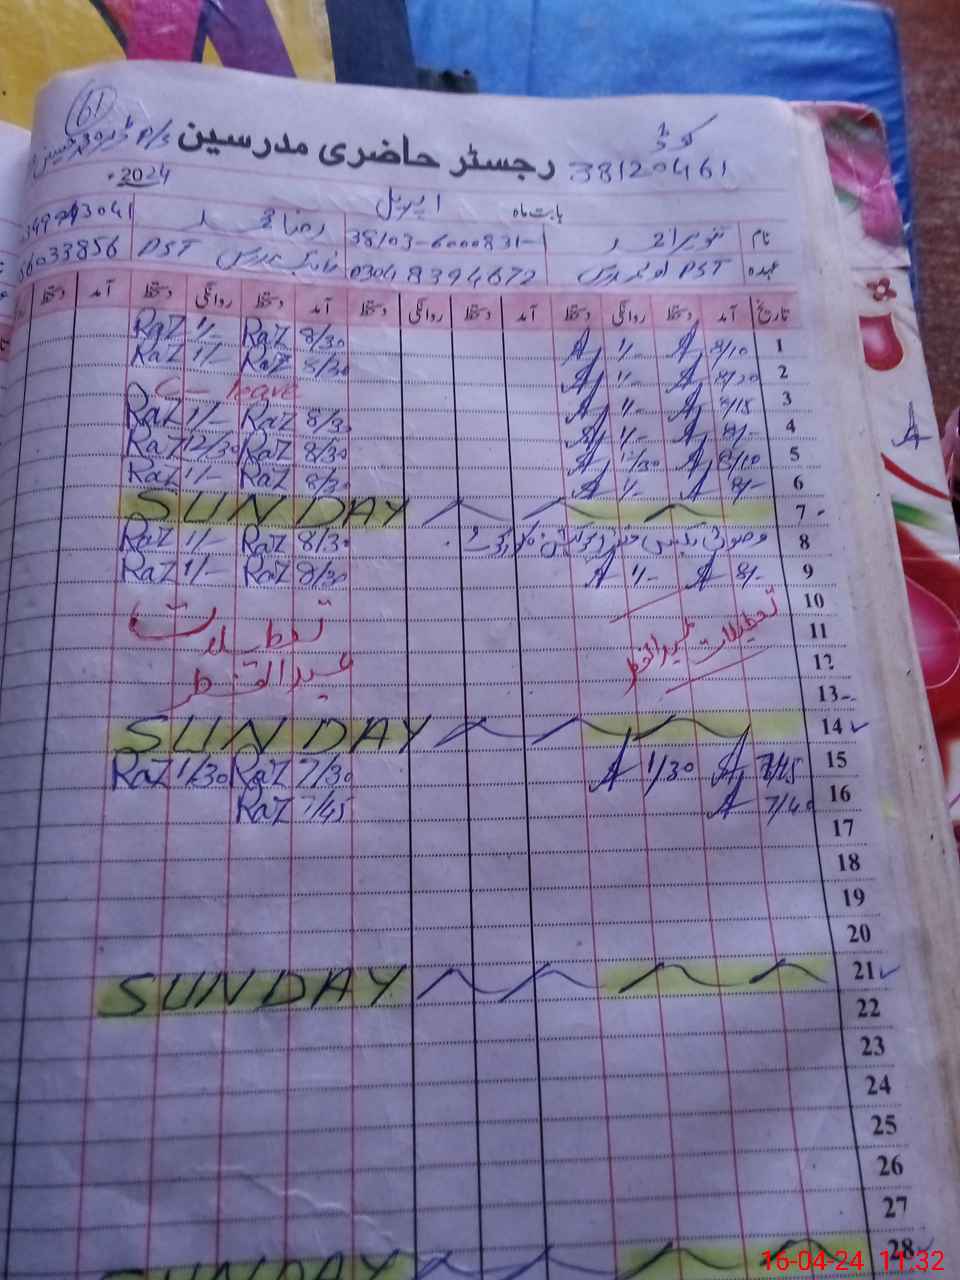 61
کوڈ
38120461 رجسٹر حاضری مدرسین P/S
بابت ماہ اپریل 2024
نام تنویر احمد 38103-6000831-1 رضا محمد
عہدہ PST 03048394672 PST 56033856
تاریخ آمد دستخط روانگی دستخط آمد دستخط روانگی دستخط آمد دستخط روانگی دستخط آمد دستخط
1 8/10 1/- 8/30 RaZ 1/- RaZ
2 1/- 8/30 RaZ 1/- RaZ
3 1/- C - leave
4 8/- 1/- 8/30 RaZ 1/- RaZ
5 8/10 12/30 8/30 RaZ 12/30 RaZ
6 8/- 1/- 8/30 RaZ 1/- RaZ
7 SUNDAY
8 8/30 RaZ 1/- RaZ
9 8/- 1/- 8/30 RaZ 1/- RaZ
10
11 تعطیلات عیدالفطر تعطیلات
12 عیدالفطر
13
14 SUNDAY
15 7/45 1/30 7/30 RaZ 1/30 RaZ
16 7/45 7/45 RaZ
17
18
19
20
21 SUNDAY
22
23
24
25
26
27
28 SUNDAY
16-04-24 11:32